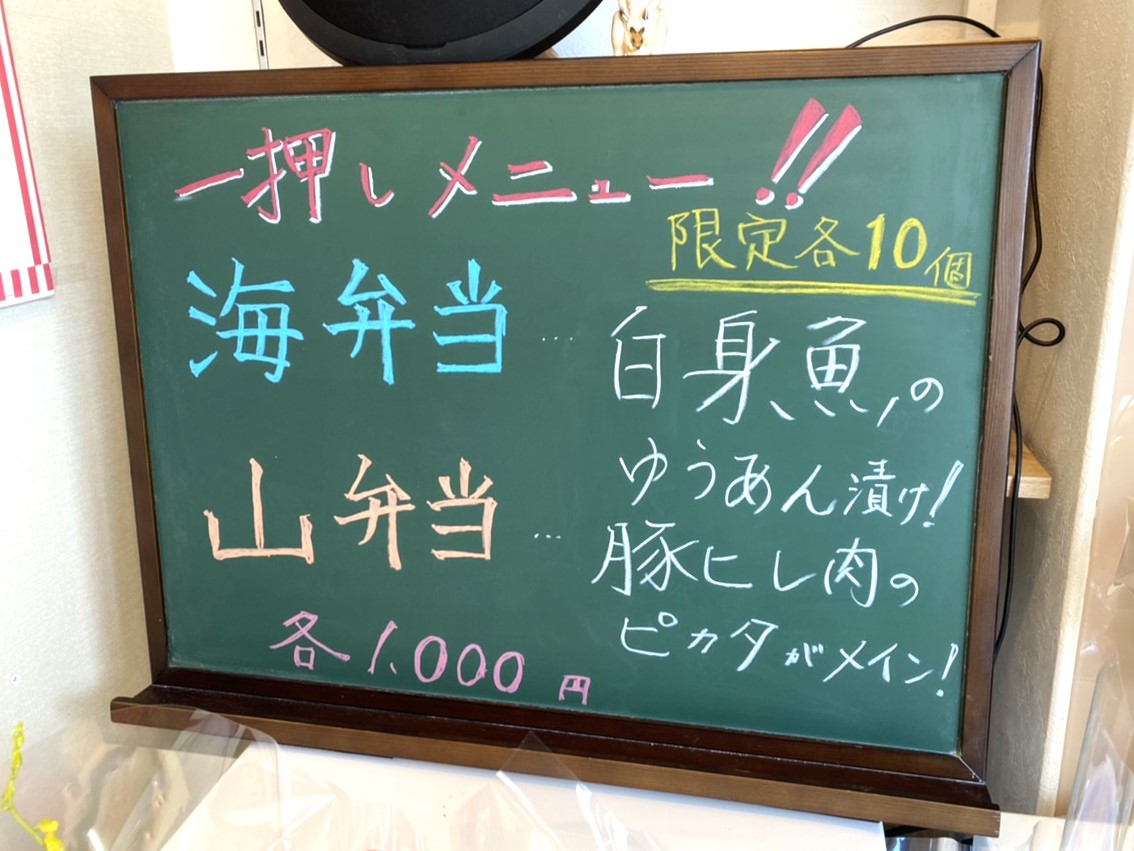 一押しメニュー!!
限定各10個
海弁当 … 白身魚の
ゆうあん漬け!
山弁当 … 豚ヒレ肉の
ピカタがメイン!
各1,000円